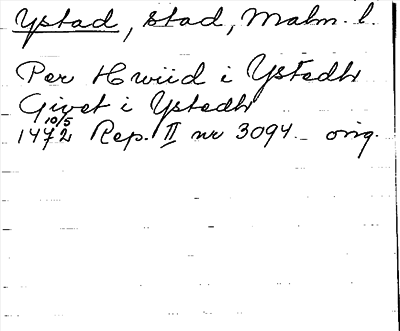 Ystad, stad, Malm. l.
Per Hwiid i Ystedh
Givet i Ystedh
10/5
1472 Rep. II nr 3094 - orig.